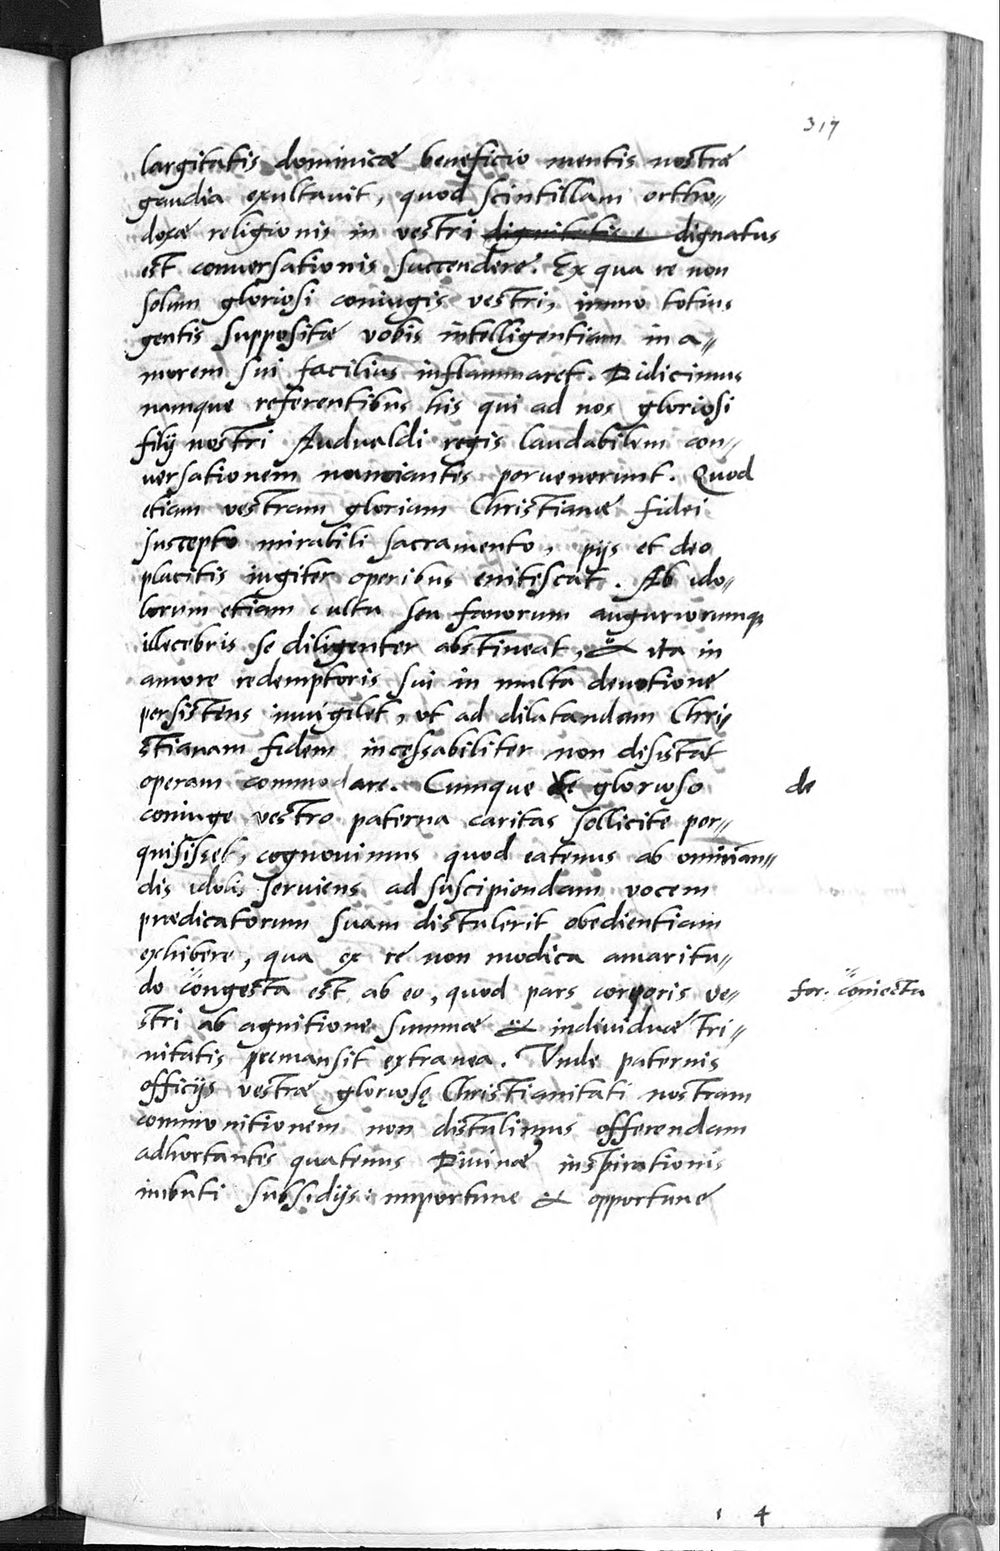 317
largitatis dominicæ beneficio mentis nostræ
gaudia exultauit, quod scintillam ortho„
doxæ religionis in vestri dignitatis e dignatus
est conuersationis succendere. Ex qua re non
solum gloriosi coniugis vestri, immo totius
gentis suppositæ vobis intelligentiam in a„
morem sui facilius inflammaret. Didicimus
namque referentibus his qui ad nos gloriosi
filij nostri Audualdi regis laudabilem con„
uersationem nunciantes peruenerunt. Quod
etiam vestram gloriam Christianæ fidei
suscepto mirabili sacramento, pijs et deo
placitis iugiter operibus enitescat. Ab ido„
lorum etiam cultu seu fanorum auguriorumq;
illecebris se diligenter abstineat, & ita in
amore redemptoris sui in multa deuotione
persistens inuigilet, vt ad dilatandam Chri„
stianam fidem incessabiliter non disistat
operam commodare. Cumque de glorioso
de
coniuge vestro paterna caritas sollicite per„
quisisset, cognouimus quod eatenus ab ominan„
dis idolis seruiens ad suscipiendam vocem
prædicatorum suam distulerit obedientiam
exhibere, qua ex re non modica amaritu„
do congesta est ab eo, quod pars corporis ve„
for. coniecta
stri ab agnitione summæ & indiuiduæ Tri„
nitatis permansit extranea. Vnde paternis
officijs vestræ gloriosę Christianitati nostram
commonitionem non distulimus offerendam
adhortantes quatenus Diuinæ inspirationis
imbuti subsidijs importune & opportune
1 4